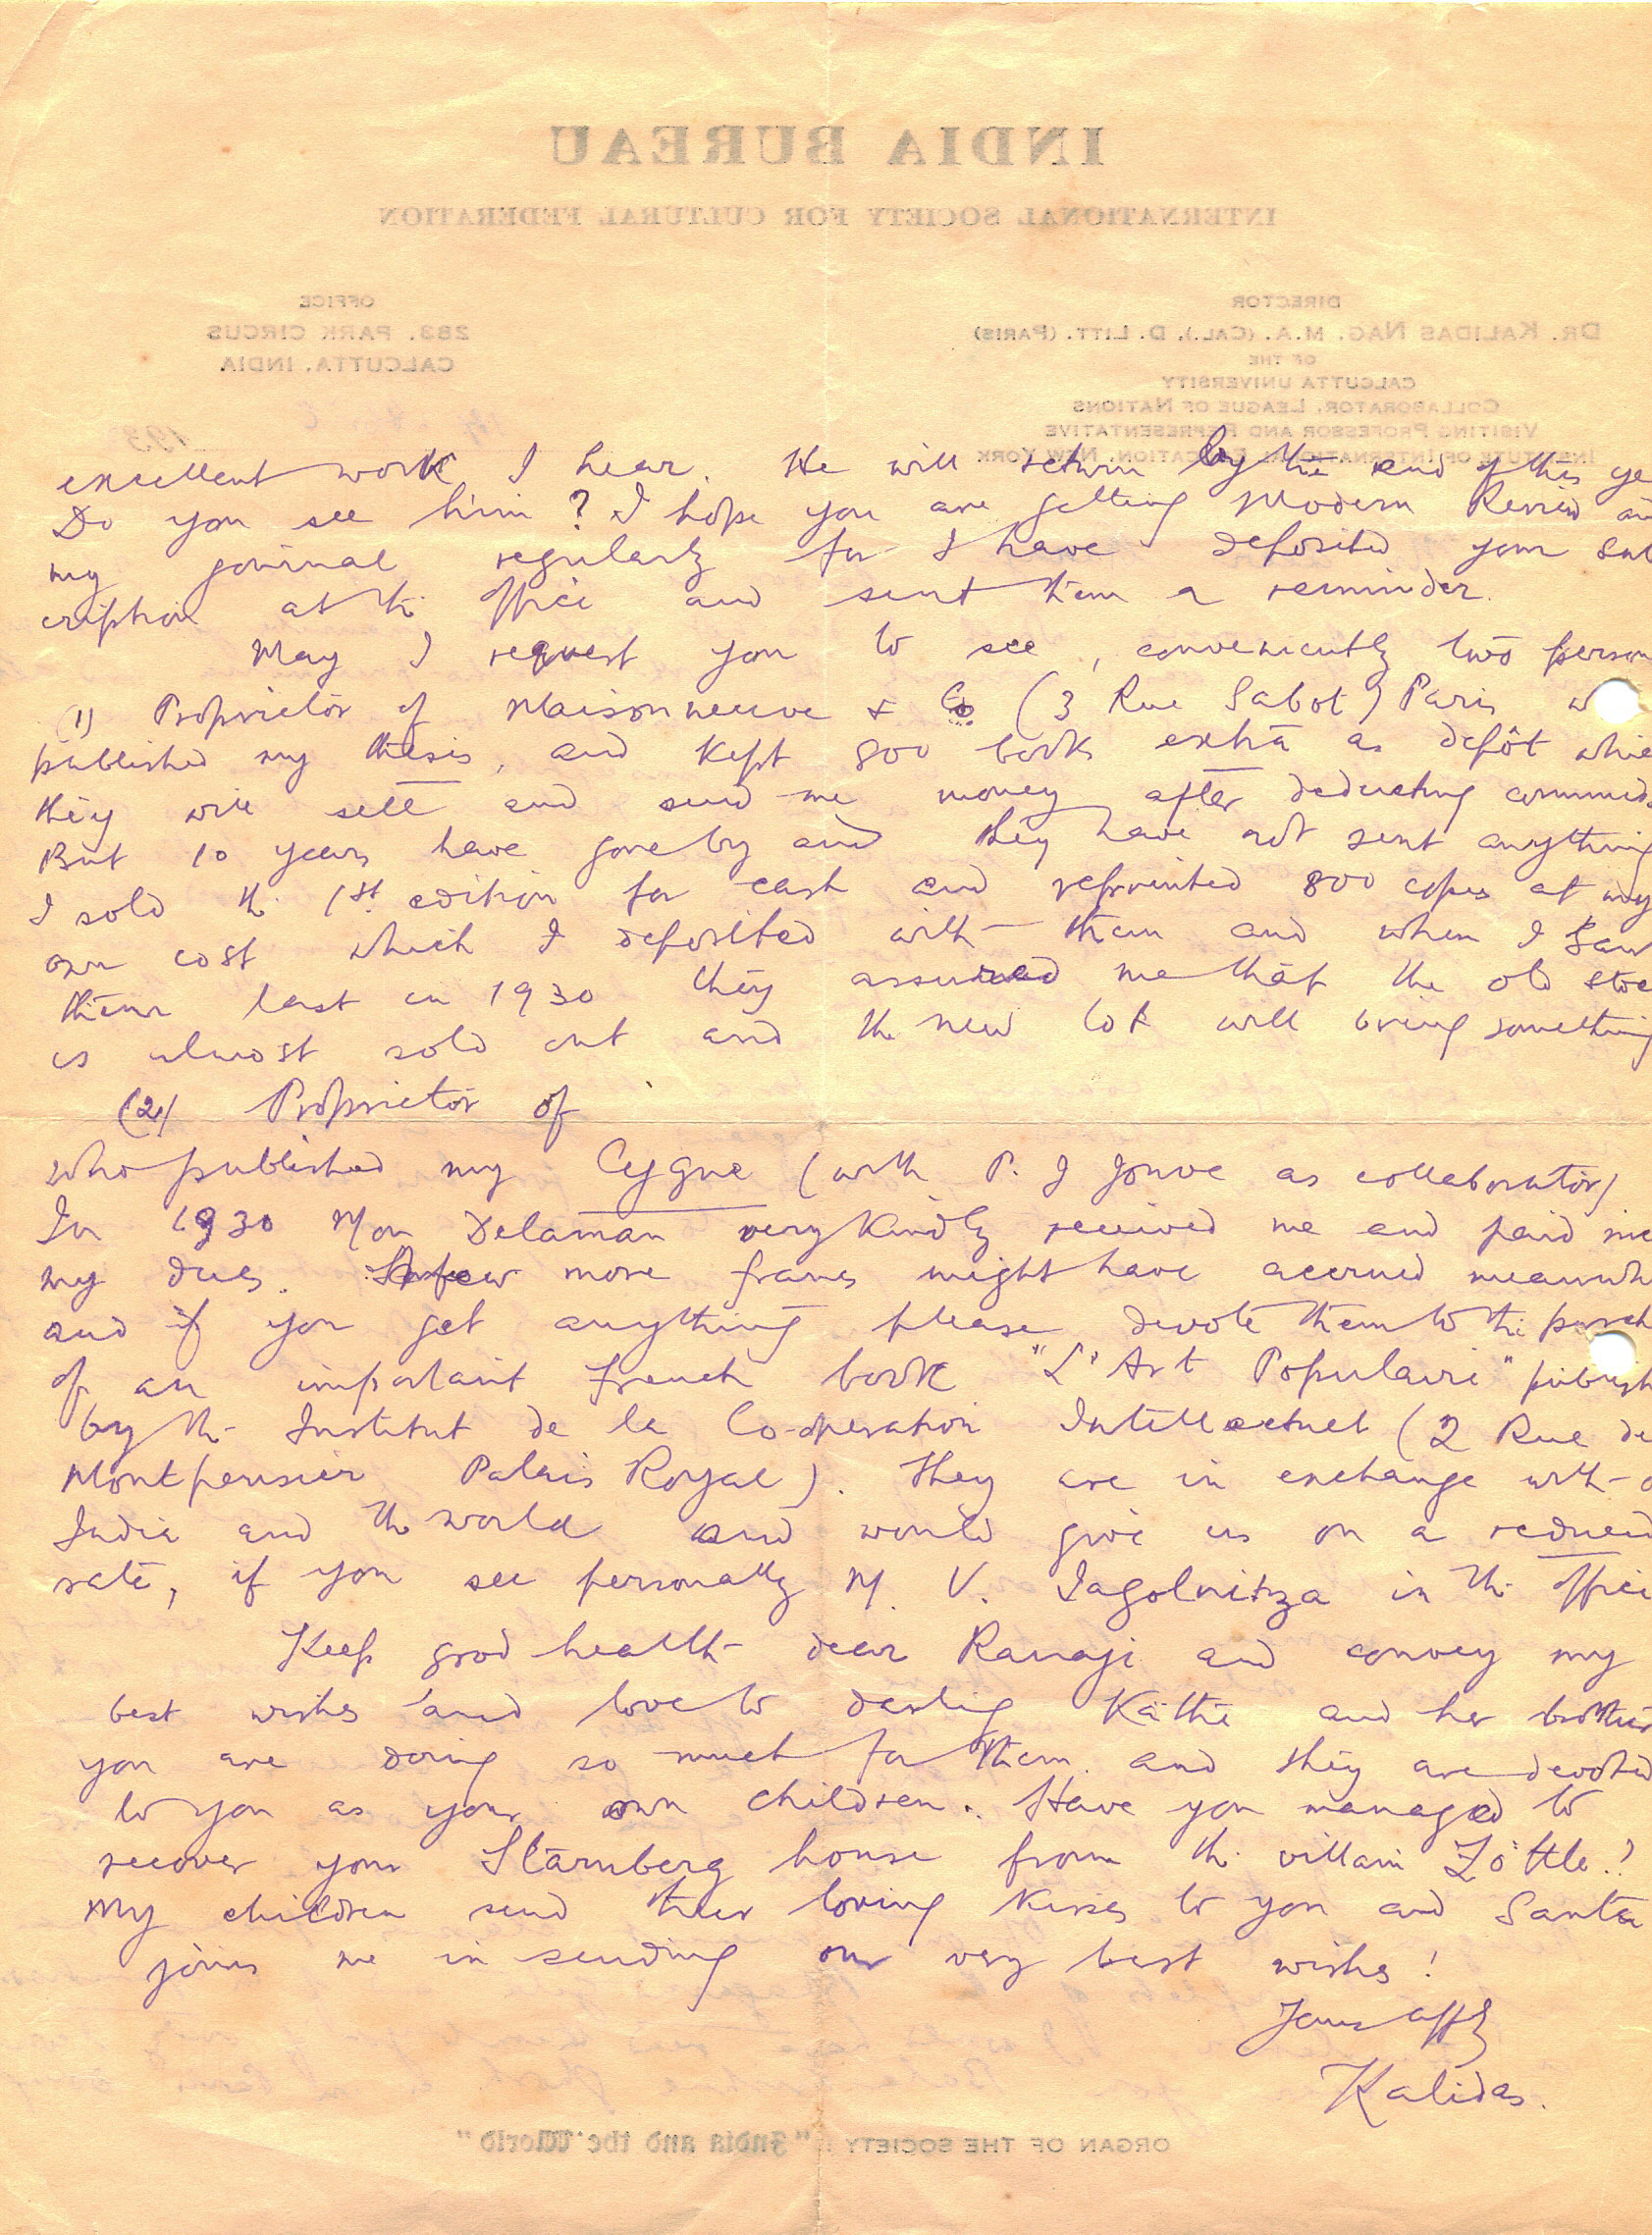 INDIA BUREAU
INTERNATIONAL SOCIETY FOR CULTURAL FEDERATION
DIRECTOR
DR. KALIDAS NAG, M.A. (CAL.), D. LITT. (PARIS)
OF THE
CALCUTTA UNIVERSITY
COLLABORATOR, LEAGUE OF NATIONS
VISITING PROFESSOR AND REPRESENTATIVE
INSTITUTE OF INTERNATIONAL EDUCATION, NEW YORK
OFFICE
283, PARK CIRCUS
CALCUTTA, INDIA
193
excellent work I hear. He will return by the end of this ye
Do you see him? I hope you are getting Modern Review an
my journal regularly for I have deposited your sub
cription at the office and sent them a reminder.
May I request you to see, conveniently two person
(1) Proprietor of Maisonneuve & Co (3 Rue Sabot) Paris w
published my thesis, and kept 800 books extra as depôt whic
they will sell and send me money after deducting commis
But 10 years have gone by and they have not sent anything
I sold the 1st. edition for cash and reprinted 800 copies at my
own cost which I deposited with them and when I saw
them last in 1930 they assured me that the old stoc
is almost sold out and the new lot will bring something
(2) Proprietor of
who published my Cygne (with P. J Jouve as collaborator)
In 1930 Mon Delaman very kindly received me and paid me
my dues. few more francs might have accrued meanwh
and if you get anything please devote them to the purch
of an important French book "L'Art Populaire" publish
by the Institut de la Co-operation Intellectuel (2 Rue de
Montpensier Palais Royal). They are in exchange with
India and the world and would give us on a reduced
rate, if you see personally M. V. in the office
Keep good health dear Ranaji and convey my
best wishes and love to darling Käthe and her brother
you are doing so much for them and they are devoted
to you as your own children. Have you managed to
recover your Starnberg house from the villain Zöttle?
My children send their loving kisses to you and Santa
joins me in sending our very best wishes!
Yours affly
Kalidas.
ORGAN OF THE SOCIETY : "India and the World"